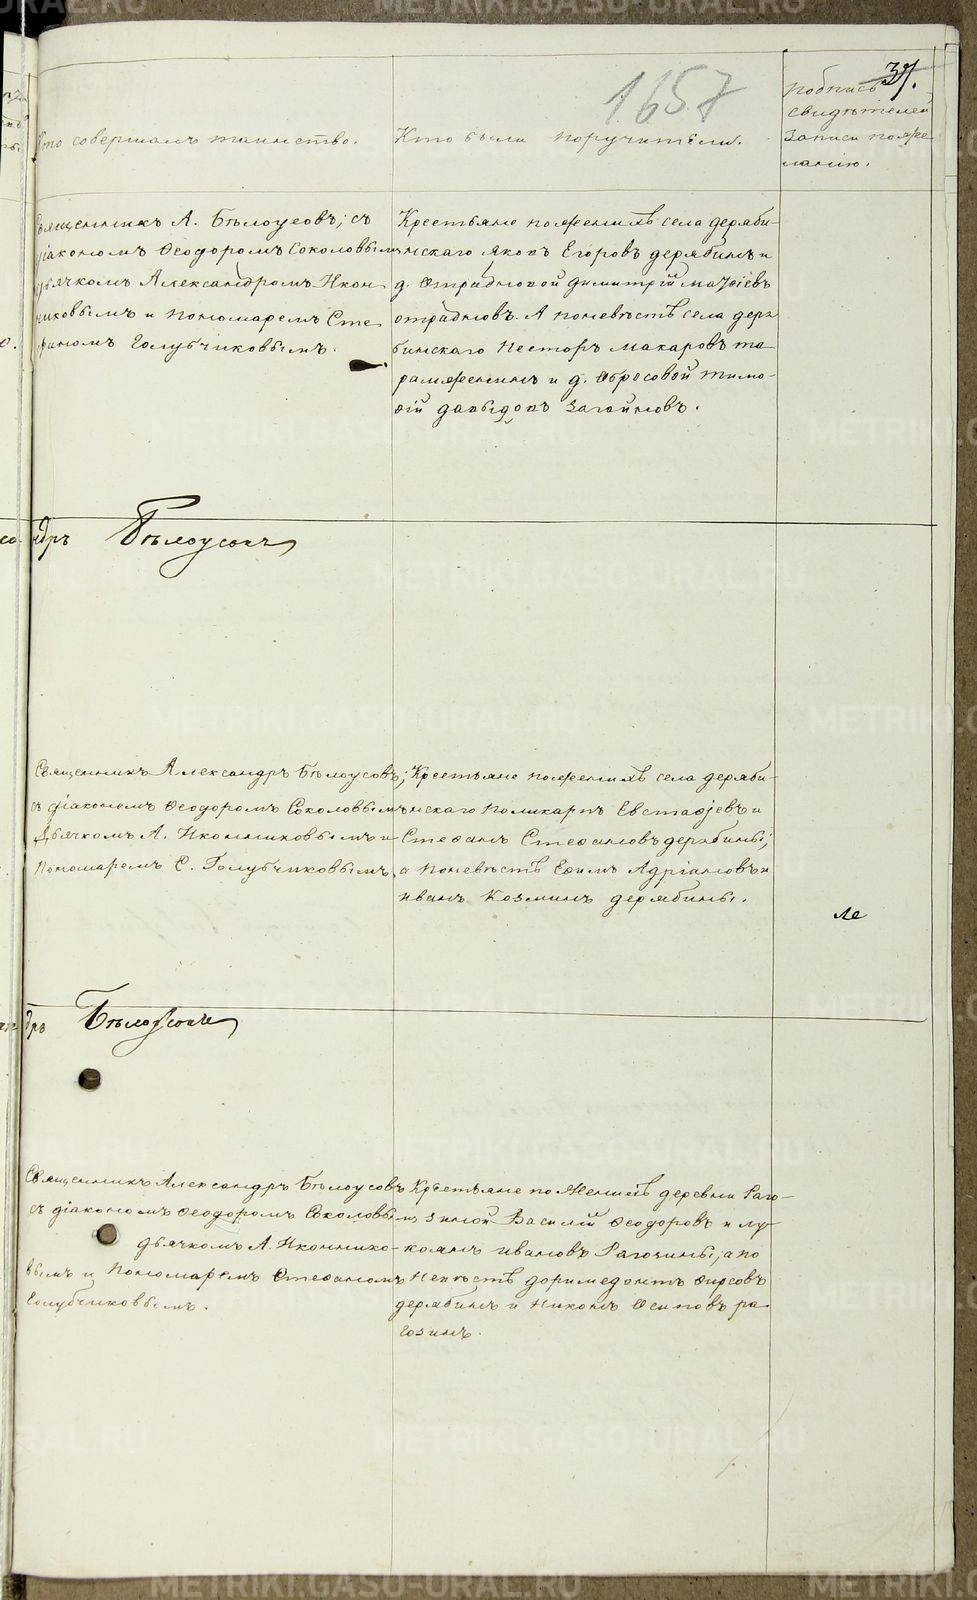 1657
37.
Кто совершалъ таинство.
Кто были поручители.
Подпись
свидѣтелей
записи по же
ланію.
Священникъ А. Бѣлоусовъ; съ
діакономъ Ѳеодоромъ Соколовымъ
дьячкомъ Александромъ Икон
никовымъ и Пономаремъ Сте
фаномъ Голубчиковымъ.
Крестьяне по женихѣ села деряби-
нскаго Яковъ Егоровъ дерябинъ и
д. Отрадновой димитрій Маѳіевъ
отрадновъ. А поневѣстѣ села деря
бинскаго Несторъ Макаровъ та
раженинъ и д. Обросовой Тимо-
ѳій давыдовъ Загайновъ.
ндръ Бѣлоусовъ
Священникъ Александръ Бѣлоусовъ;
съ діакономъ Ѳеодоромъ Соколовымъ
Дьячкомъ А. Иконниковымъ и
Пономаремъ С. Голубчиковымъ.
Крестьяне по женихѣ села деряби-
нскаго Поликарпъ Евстафіевъ и
Стефанъ Стефановъ дерябины;
а поневѣстѣ Ефимъ Адріановъ и
иванъ Козминъ дерябины.
ле
дръ Бѣлоусовъ
Священникъ Александръ Бѣлоусовъ
съ діакономъ Ѳеодоромъ Соколовы
дьячкомъ А. Иконнико-
вымъ и Пономаремъ Стефаномъ
Голубчиковымъ.
Крестьяне по Женихѣ деревни Раго-
зиной Василій Ѳеодоровъ и лу
коянъ ивановъ Рагозины; а по
Невѣстѣ доримедонтъ Фирсовъ
дерябинъ и Никонъ Осиповъ ра
гозинъ.
METRIKI.GASO-URAL.RU